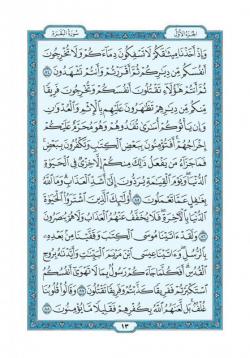 الجزء الأول
سورة البقرة
وَإِذْ أَخَذْنَا مِيثَاقَكُمْ لَا تَسْفِكُونَ دِمَاءَكُمْ وَلَا تُخْرِجُونَ
أَنفُسَكُم مِّن دِيَارِكُمْ ثُمَّ أَقْرَرْتُمْ وَأَنتُمْ تَشْهَدُونَ ٨٤
ثُمَّ أَنتُمْ هَٰؤُلَاءِ تَقْتُلُونَ أَنفُسَكُمْ وَتُخْرِجُونَ فَرِيقًا
مِّنكُم مِّن دِيَارِهِمْ تَظَاهَرُونَ عَلَيْهِم بِالْإِثْمِ وَالْعُدْوَانِ
وَإِن يَأْتُوكُمْ أُسَارَىٰ تُفَادُوهُمْ وَهُوَ مُحَرَّمٌ عَلَيْكُمْ
إِخْرَاجُهُمْ أَفَتُؤْمِنُونَ بِبَعْضِ الْكِتَابِ وَتَكْفُرُونَ بِبَعْضٍ
فَمَا جَزَاءُ مَن يَفْعَلُ ذَٰلِكَ مِنكُمْ إِلَّا خِزْيٌ فِي الْحَيَاةِ
الدُّنْيَا وَيَوْمَ الْقِيَامَةِ يُرَدُّونَ إِلَىٰ أَشَدِّ الْعَذَابِ وَمَا اللَّهُ
بِغَافِلٍ عَمَّا تَعْمَلُونَ ٨٥ أُولَٰئِكَ الَّذِينَ اشْتَرَوُا الْحَيَاةَ
الدُّنْيَا بِالْآخِرَةِ فَلَا يُخَفَّفُ عَنْهُمُ الْعَذَابُ وَلَا هُمْ يُنصَرُونَ
٨٦ وَلَقَدْ آتَيْنَا مُوسَى الْكِتَابَ وَقَفَّيْنَا مِن بَعْدِهِ
بِالرُّسُلِ وَآتَيْنَا عِيسَى ابْنَ مَرْيَمَ الْبَيِّنَاتِ وَأَيَّدْنَاهُ بِرُوحِ
الْقُدُسِ أَفَكُلَّمَا جَاءَكُمْ رَسُولٌ بِمَا لَا تَهْوَىٰ أَنفُسُكُمُ
اسْتَكْبَرْتُمْ فَفَرِيقًا كَذَّبْتُمْ وَفَرِيقًا تَقْتُلُونَ ٨٧ وَقَالُوا قُلُوبُنَا
غُلْفٌ بَل لَّعَنَهُمُ اللَّهُ بِكُفْرِهِمْ فَقَلِيلًا مَّا يُؤْمِنُونَ ٨٨
١٣